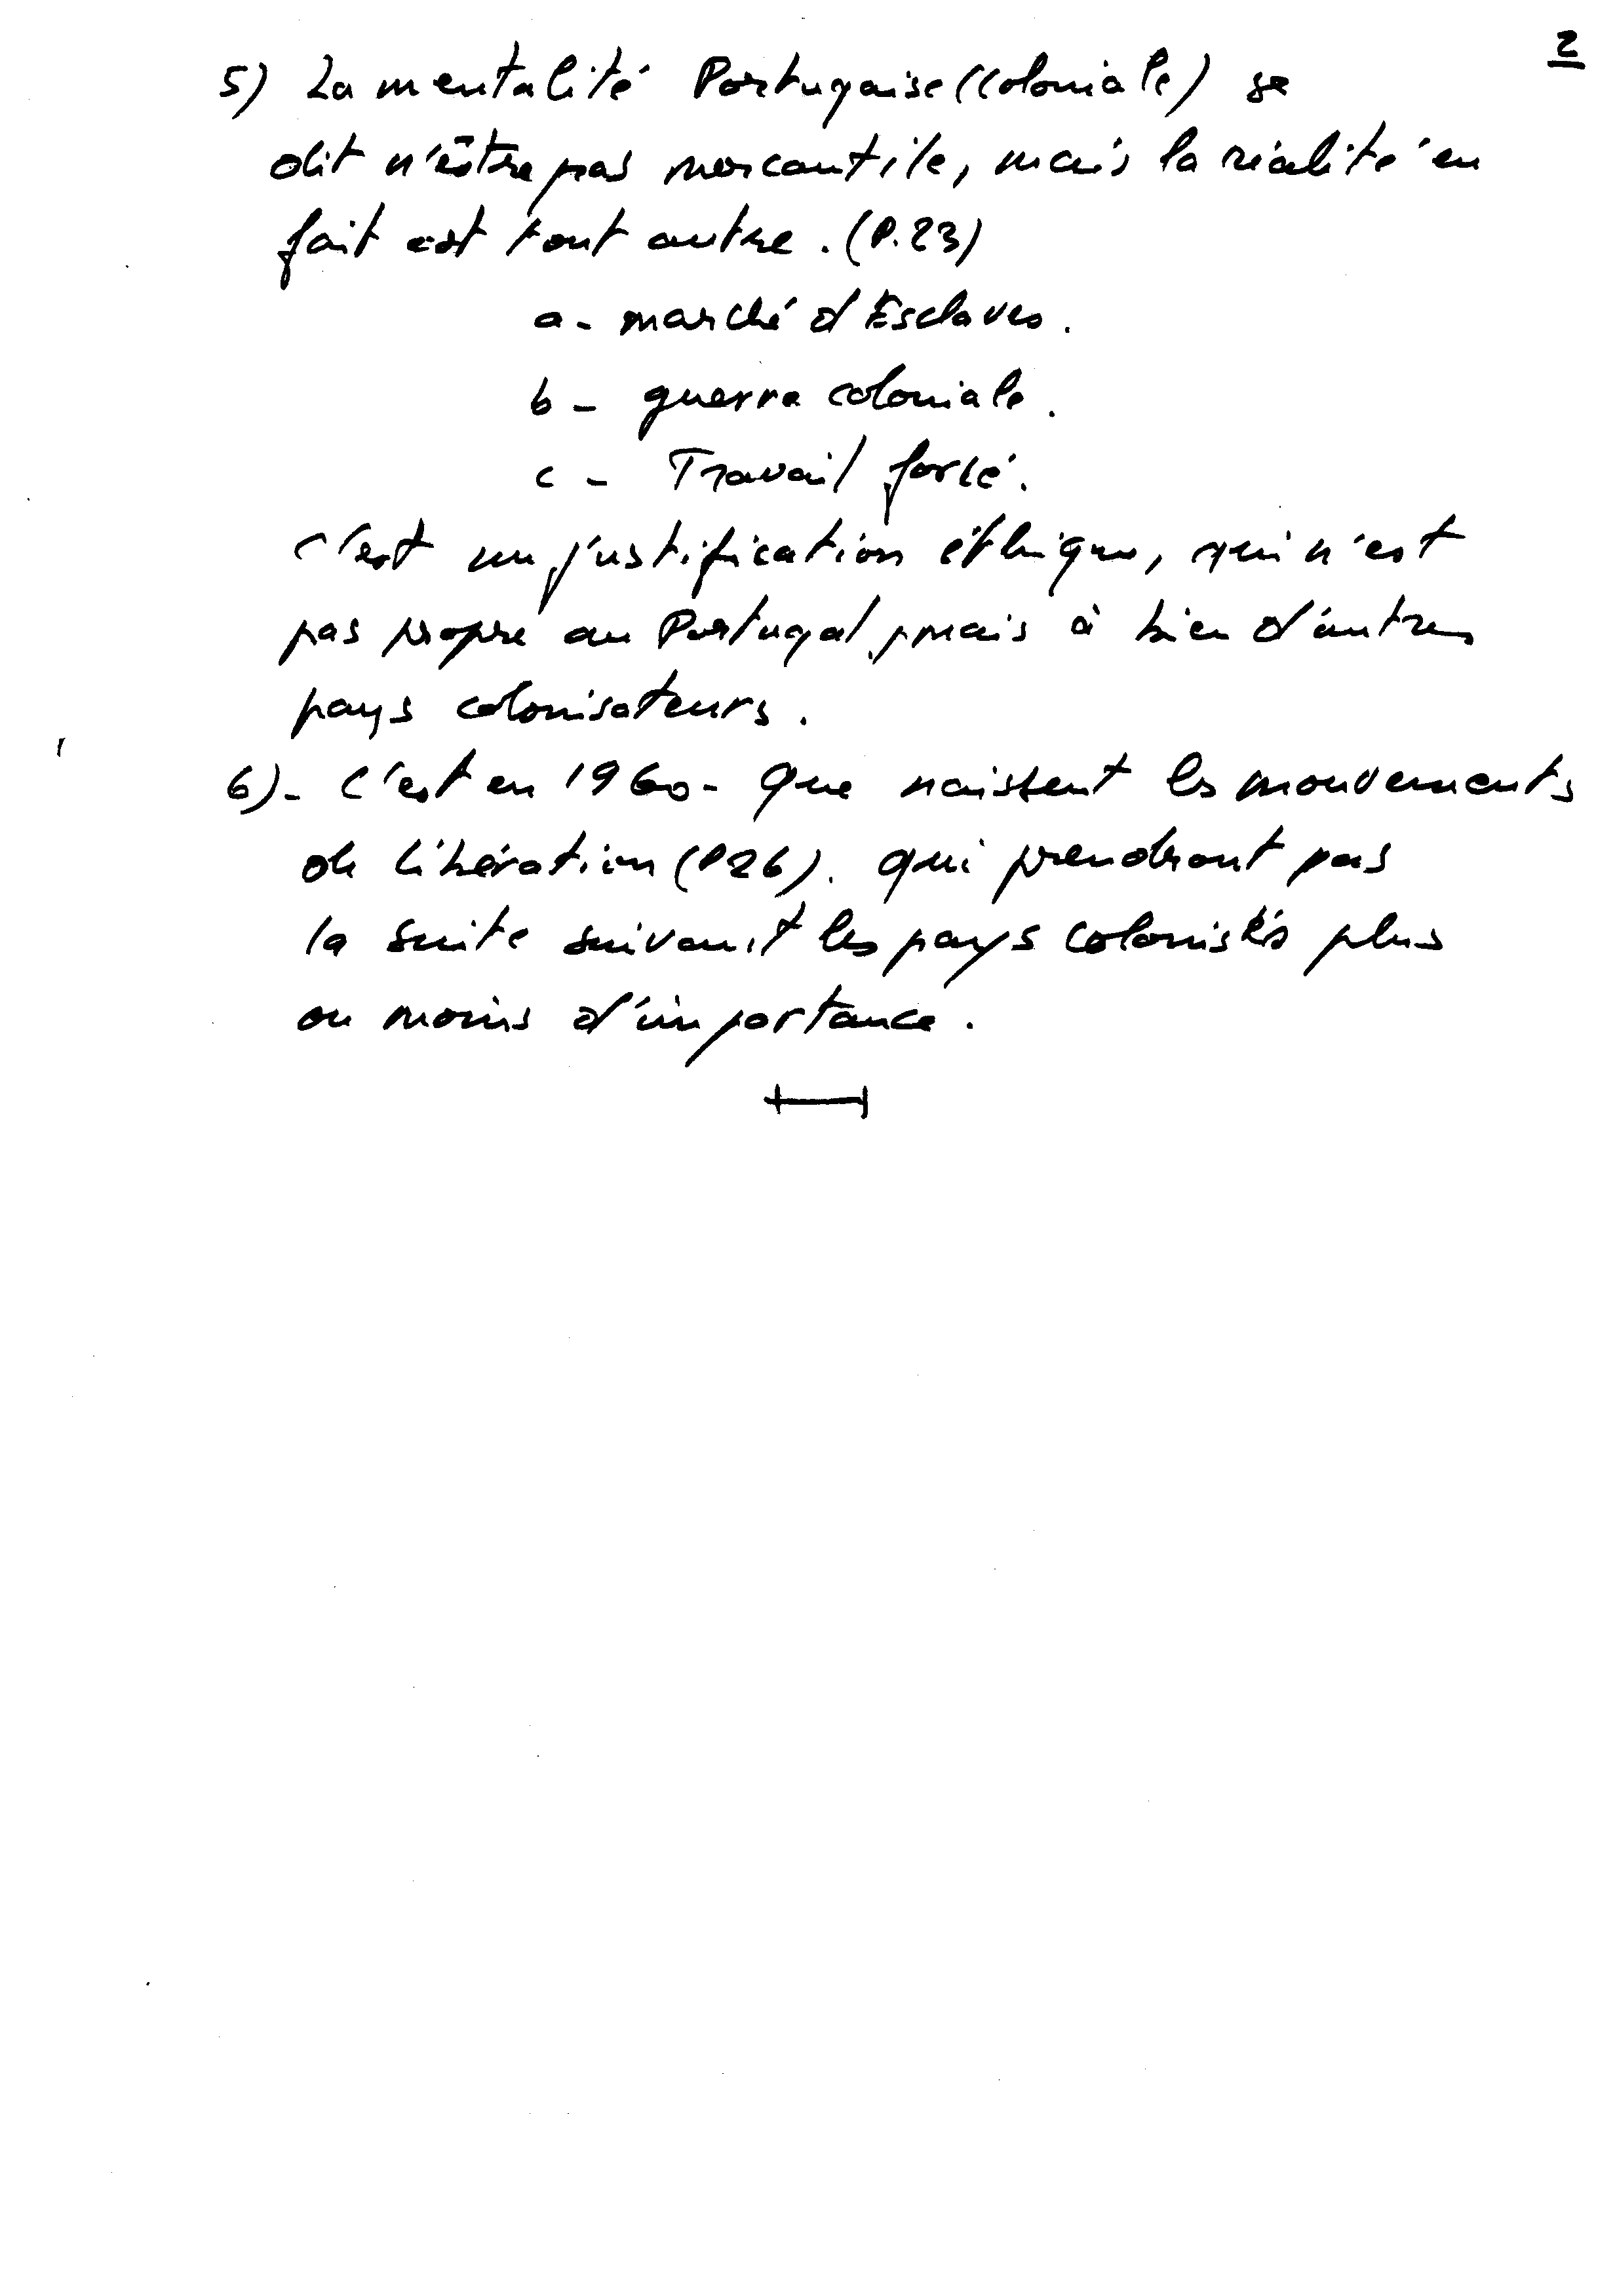 2
5) La mentalité Portugaise (Coloniale) se
dit n'être pas mercantile, mais la réalité en
fait est tout autre. (P.23)
a - marché d'Esclaves.
b - guerre coloniale.
c - Travail forcé.
C'est un justification éthique, qui n'est
pas propre au Portugal, mais à bien d'autres
pays colonisateurs.
6) - C'est en 1960 - que naissent les mouvements
de libération (P26). qui prendront pas
la suite suivant les pays colonisés plus
ou moins d'importance.